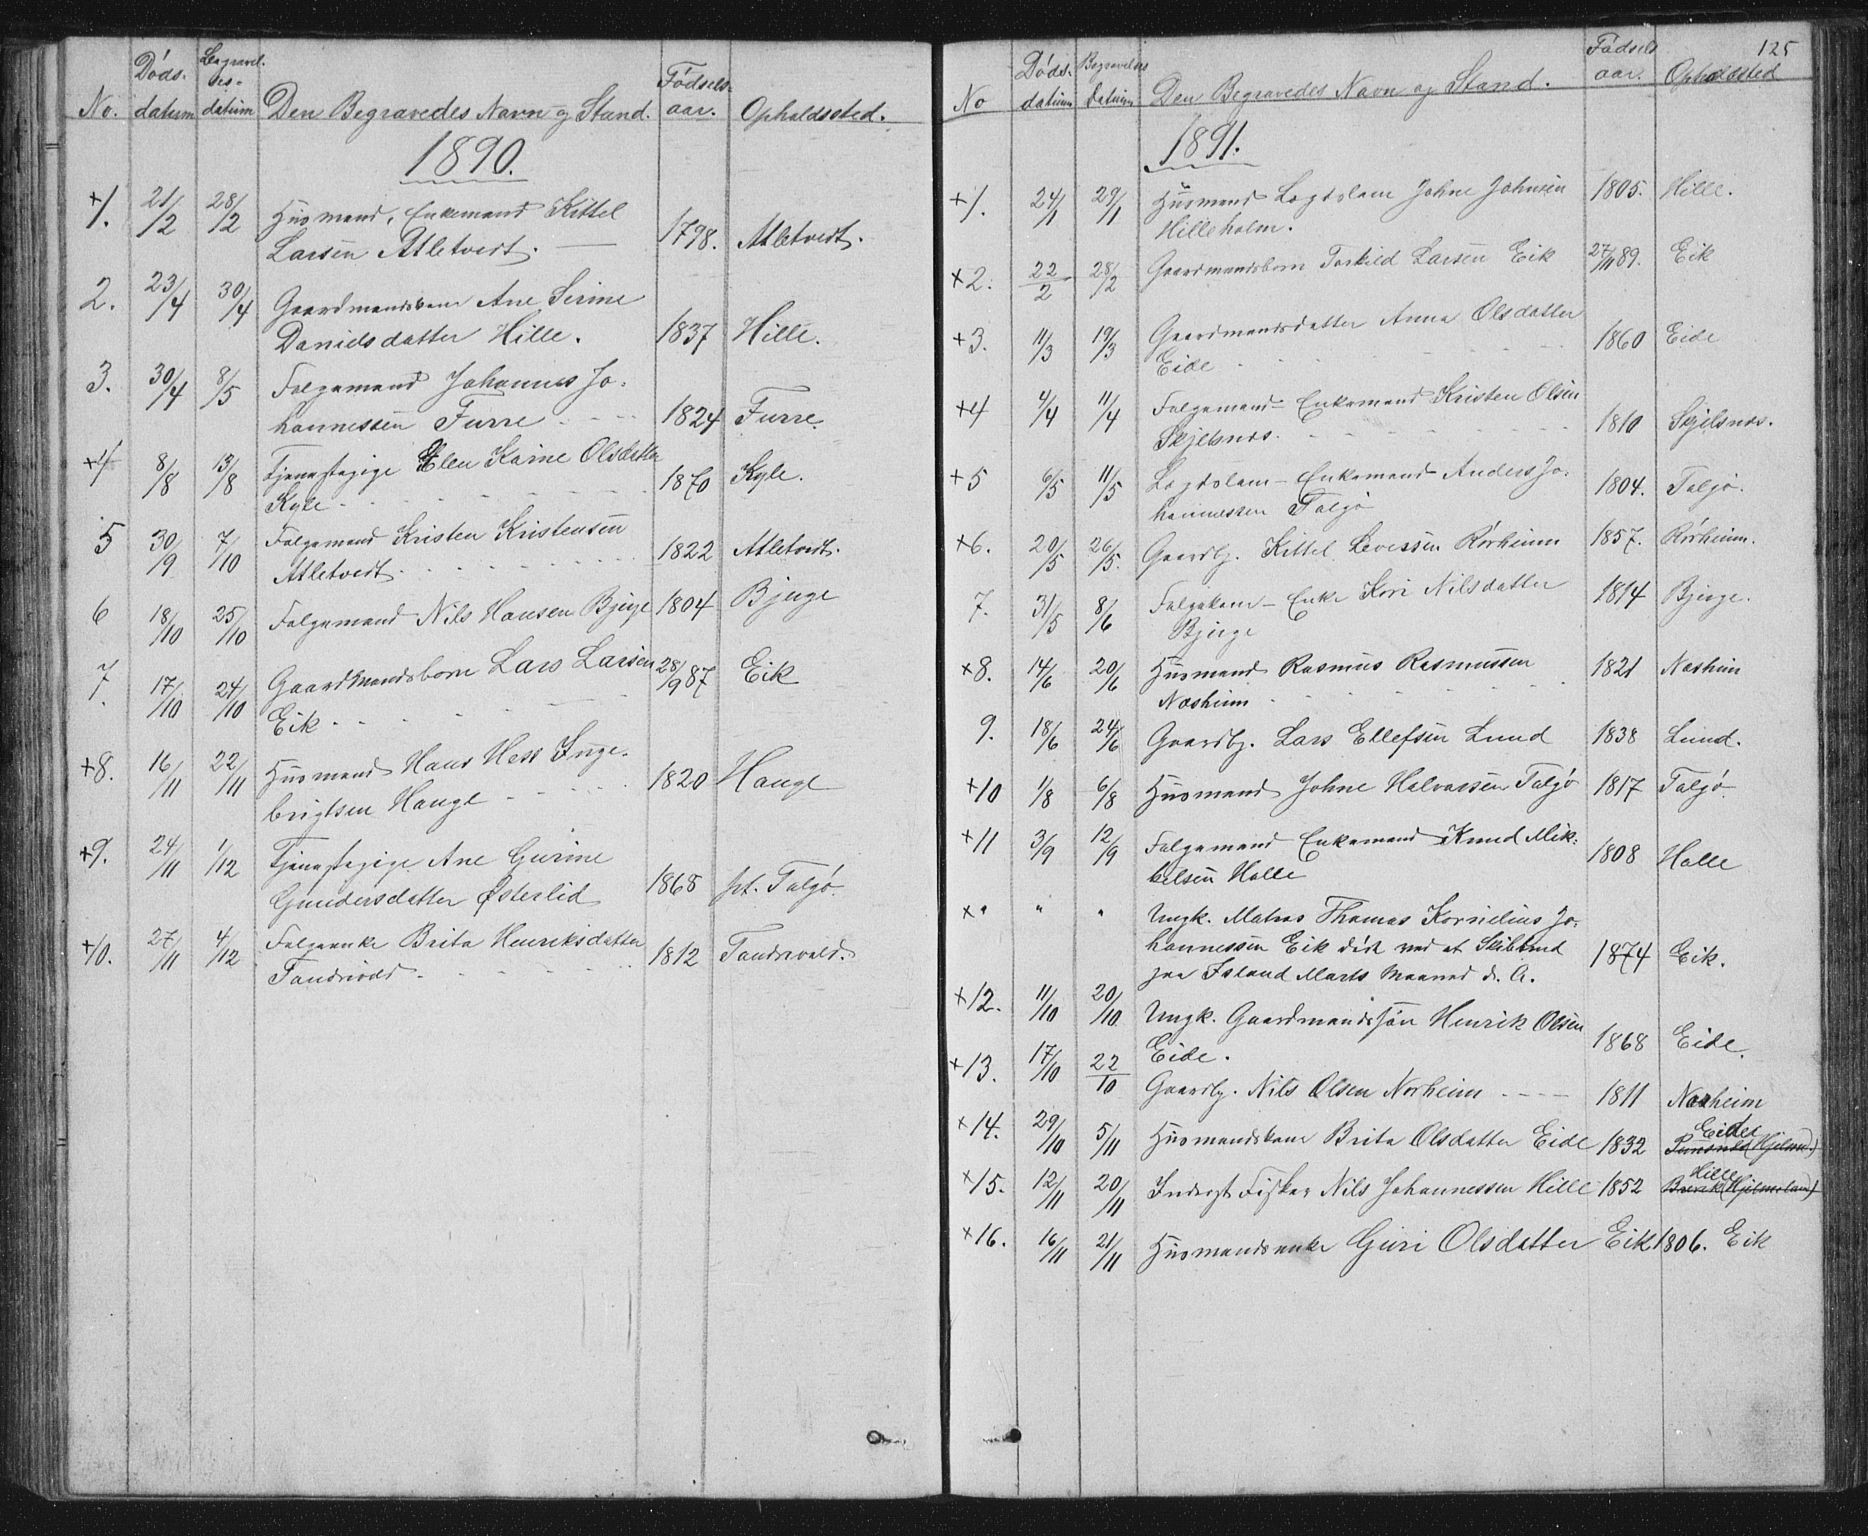 No. Døds-datum Begravelses-datum Den Begravedes Navn og Stand. Fødsels-aar. Opholdssted.
1890.
+1. 21/2 28/2 Husmand, Enkemand Kittel
Larsen Atletveit. 1798. Atletveit.
2. 23/4 30/4 Gaardmandskone Ane Serine
Danielsdatter Hille. 1837 Hille.
3. 30/4 8/5 Folgemand Johannes Jo-
hannessen Furre 1824 Furre.
+4 8/8 13/8 Tjenestepige Elen Karine Olsdatter
Kyle 1870 Kyle.
5 30/9 7/10 Folgemand Kristen Kristensen
Atletveit 1822 Atletveit.
6 18/10 25/10 Folgemand Nils Hansen Bjerge 1804 Bjerge
7. 17/10 24/10 Gaardmandsborn Lars Larsen
Eik 28/9 87 Eik
+8. 16/11 22/11 Husmand Hans Hess Inge-
brigtsen Hauge 1820 Hauge
+9. 24/11 1/12 Tjenestepige Ane Gurine
Gundersdatter Østerlid 1868 pt. Talgø.
+10. 27/11 4/12 Folgeenke Brita Henriksdatter
Tandrevold 1812 Tandrevold.
125
No Døds-datum Begravelses datum Den Begravedes Navn og Stand. Fødsels aar. Opholdsted
1891.
+1. 24/1 29/1 Husmand Lægdslem Johne Johnsen
Hilleholm. 1805. Hille.
+2. 22/2 28/2 Gaardmandsborn Torkild Larsen Eik 27/11 89. Eik
+3. 11/3 19/3 Gaardmandsdatter Anna Olsdatter
Eide 1860 Eide
+4 4/4 11/4 Folgemand - Enkemand Kristen Olsen
Skjelsnes. 1810 Skjelsnes.
+5 6/5 11/5 Lægdslem - Enkemand Anders Jo-
hannessen Talgø 1804. Talgø.
+6. 20/5 26/5. Gaardbr. Kittel Levessen Rørheim 1857. Rørheim.
7. 31/5 8/6 Folgekone - Enke Kari Nilsdatter
Bjerge 1814 Bjerge.
+8. 14/6 20/6 Husmand Rasmus Rasmussen
Nesheim 1821 Nesheim
9. 18/6 24/6 Gaardbr. Lars Ellefsen Lund 1838 Lund.
+10 1/8 6/8 Husmand Johne Halvorsen Talgø 1817 Talgø
+11 3/9 12/9 Folgemand Enkemand Knud Mik-
kelsen Halle 1808 Halle
+" " " Ungk. Matros Thomas Kornelius Jo-
hannessen Eik død ved et Skibbrud
paa Island Marts Maaned d. A. 1874 Eik.
+12. 11/10 20/10. Ungk. Gaardmandssøn Henrik Olsen
Eide. 1868 Eide.
+13. 17/10 22/10 Gaardbr. Nils Olsen Norheim 1811 Norheim
+14. 29/10 5/11 Husmandskone Brita Olsdatter Eide 1832 Eide
+15. 12/11 20/11 Inderst Fisker Nils Johannessen Hille 1852 Hille
Brevik (Hjelmeland)
+16. 16/11 21/11 Husmandsenke Guri Olsdatter Eik 1806. Eik